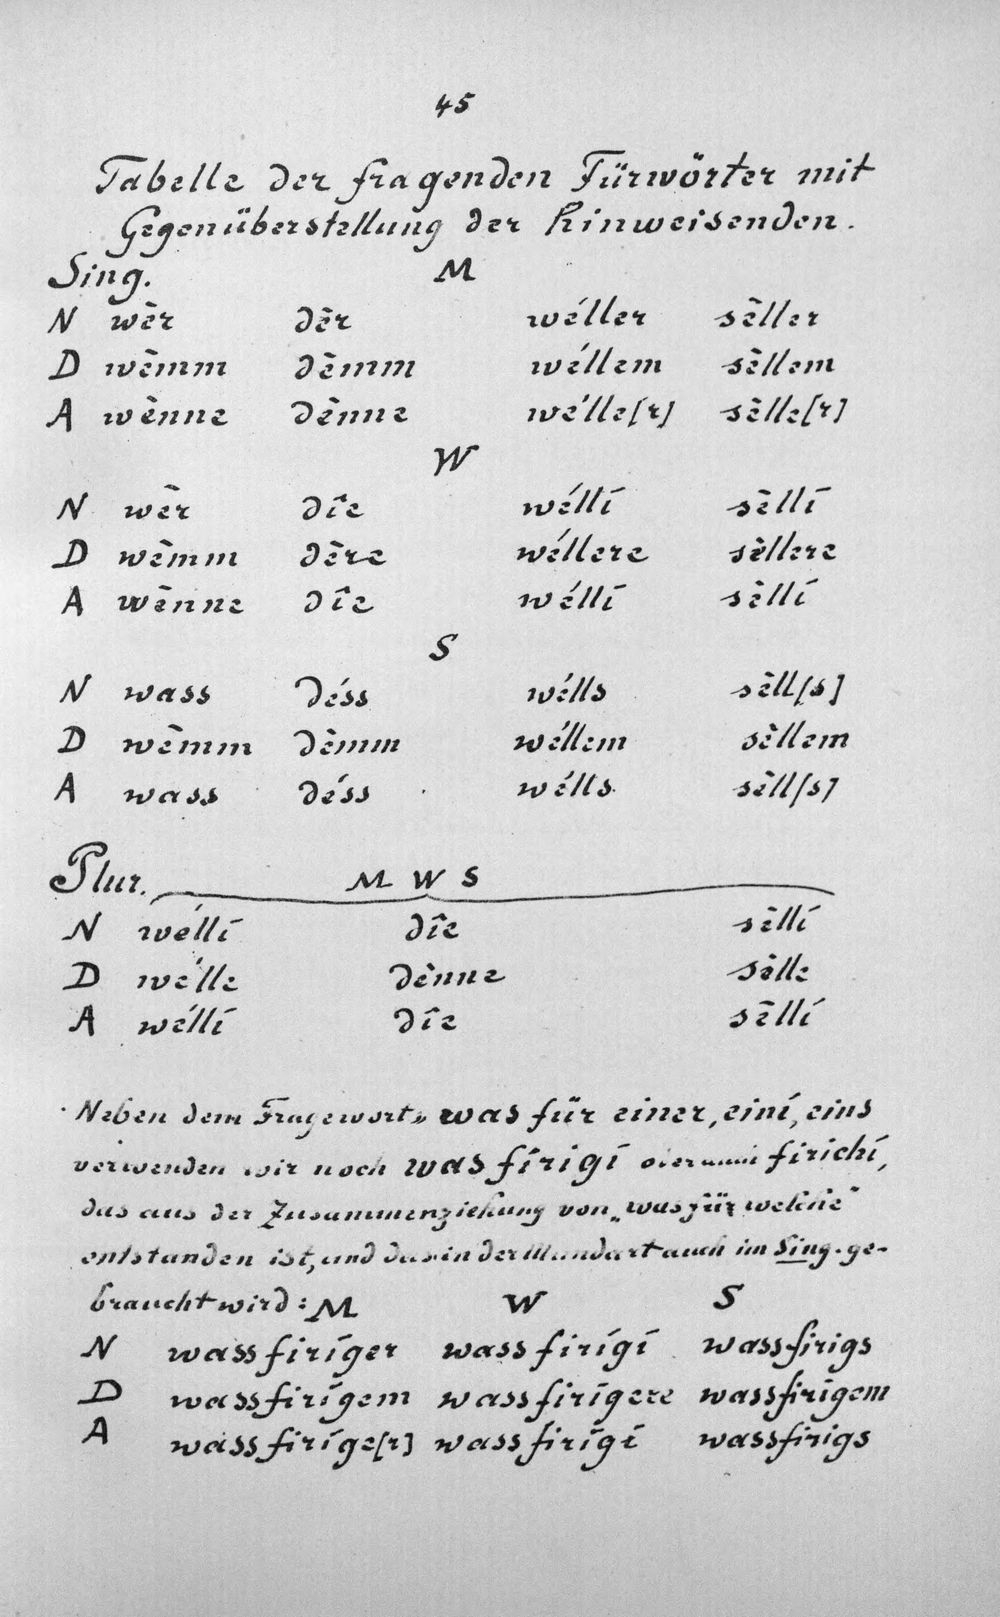 45
Tabelle der fragenden Fürwörter mit
Gegenüberstellung der hinweisenden.
Sing. M
N wèr dèr wéller sèller
D wèmm dèmm wéllem sèllem
A wènne dènne wélle[r] sèlle[r]
W
N wèr dîe wéllí sèllí
D wèmm dère wéllere sèllere
A wènne dîe wéllí sèllí
S
N wass déss wélls sèll[s]
D wèmm dèmm wéllem sèllem
A wass déss wélls sèll[s]
Plur. M W S
N wéllí dîe sèllí
D wélle dènne sèlle
A wéllí dîe sèllí
Neben dem Fragewort „was für einer, einí, eins
verwenden wir noch was fírigí oder auch firichí,
das aus der Zusammenziehung von „was für welche"
entstanden ist, und das in der Mundart auch im Sing. ge-
braucht wird: M W S
N wassfiríger wassfirígí wassfirigs
D wassfirígem wassfirígere wassfirígem
A wassfiríge[r] wassfirígí wassfirigs